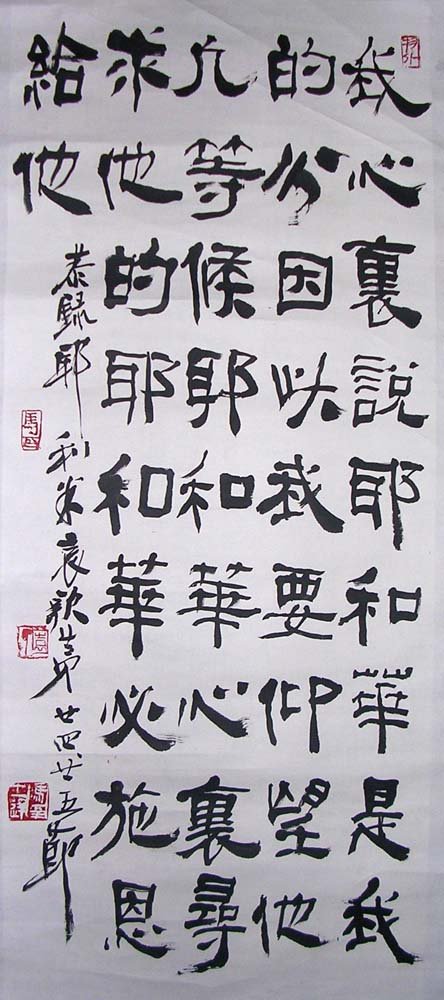 我心裏說耶和華是我
的分因此我要仰望他
凡等候耶和華心裏尋
求他的耶和華必施恩
給他
恭録耶利米哀歌第廿四廿五節